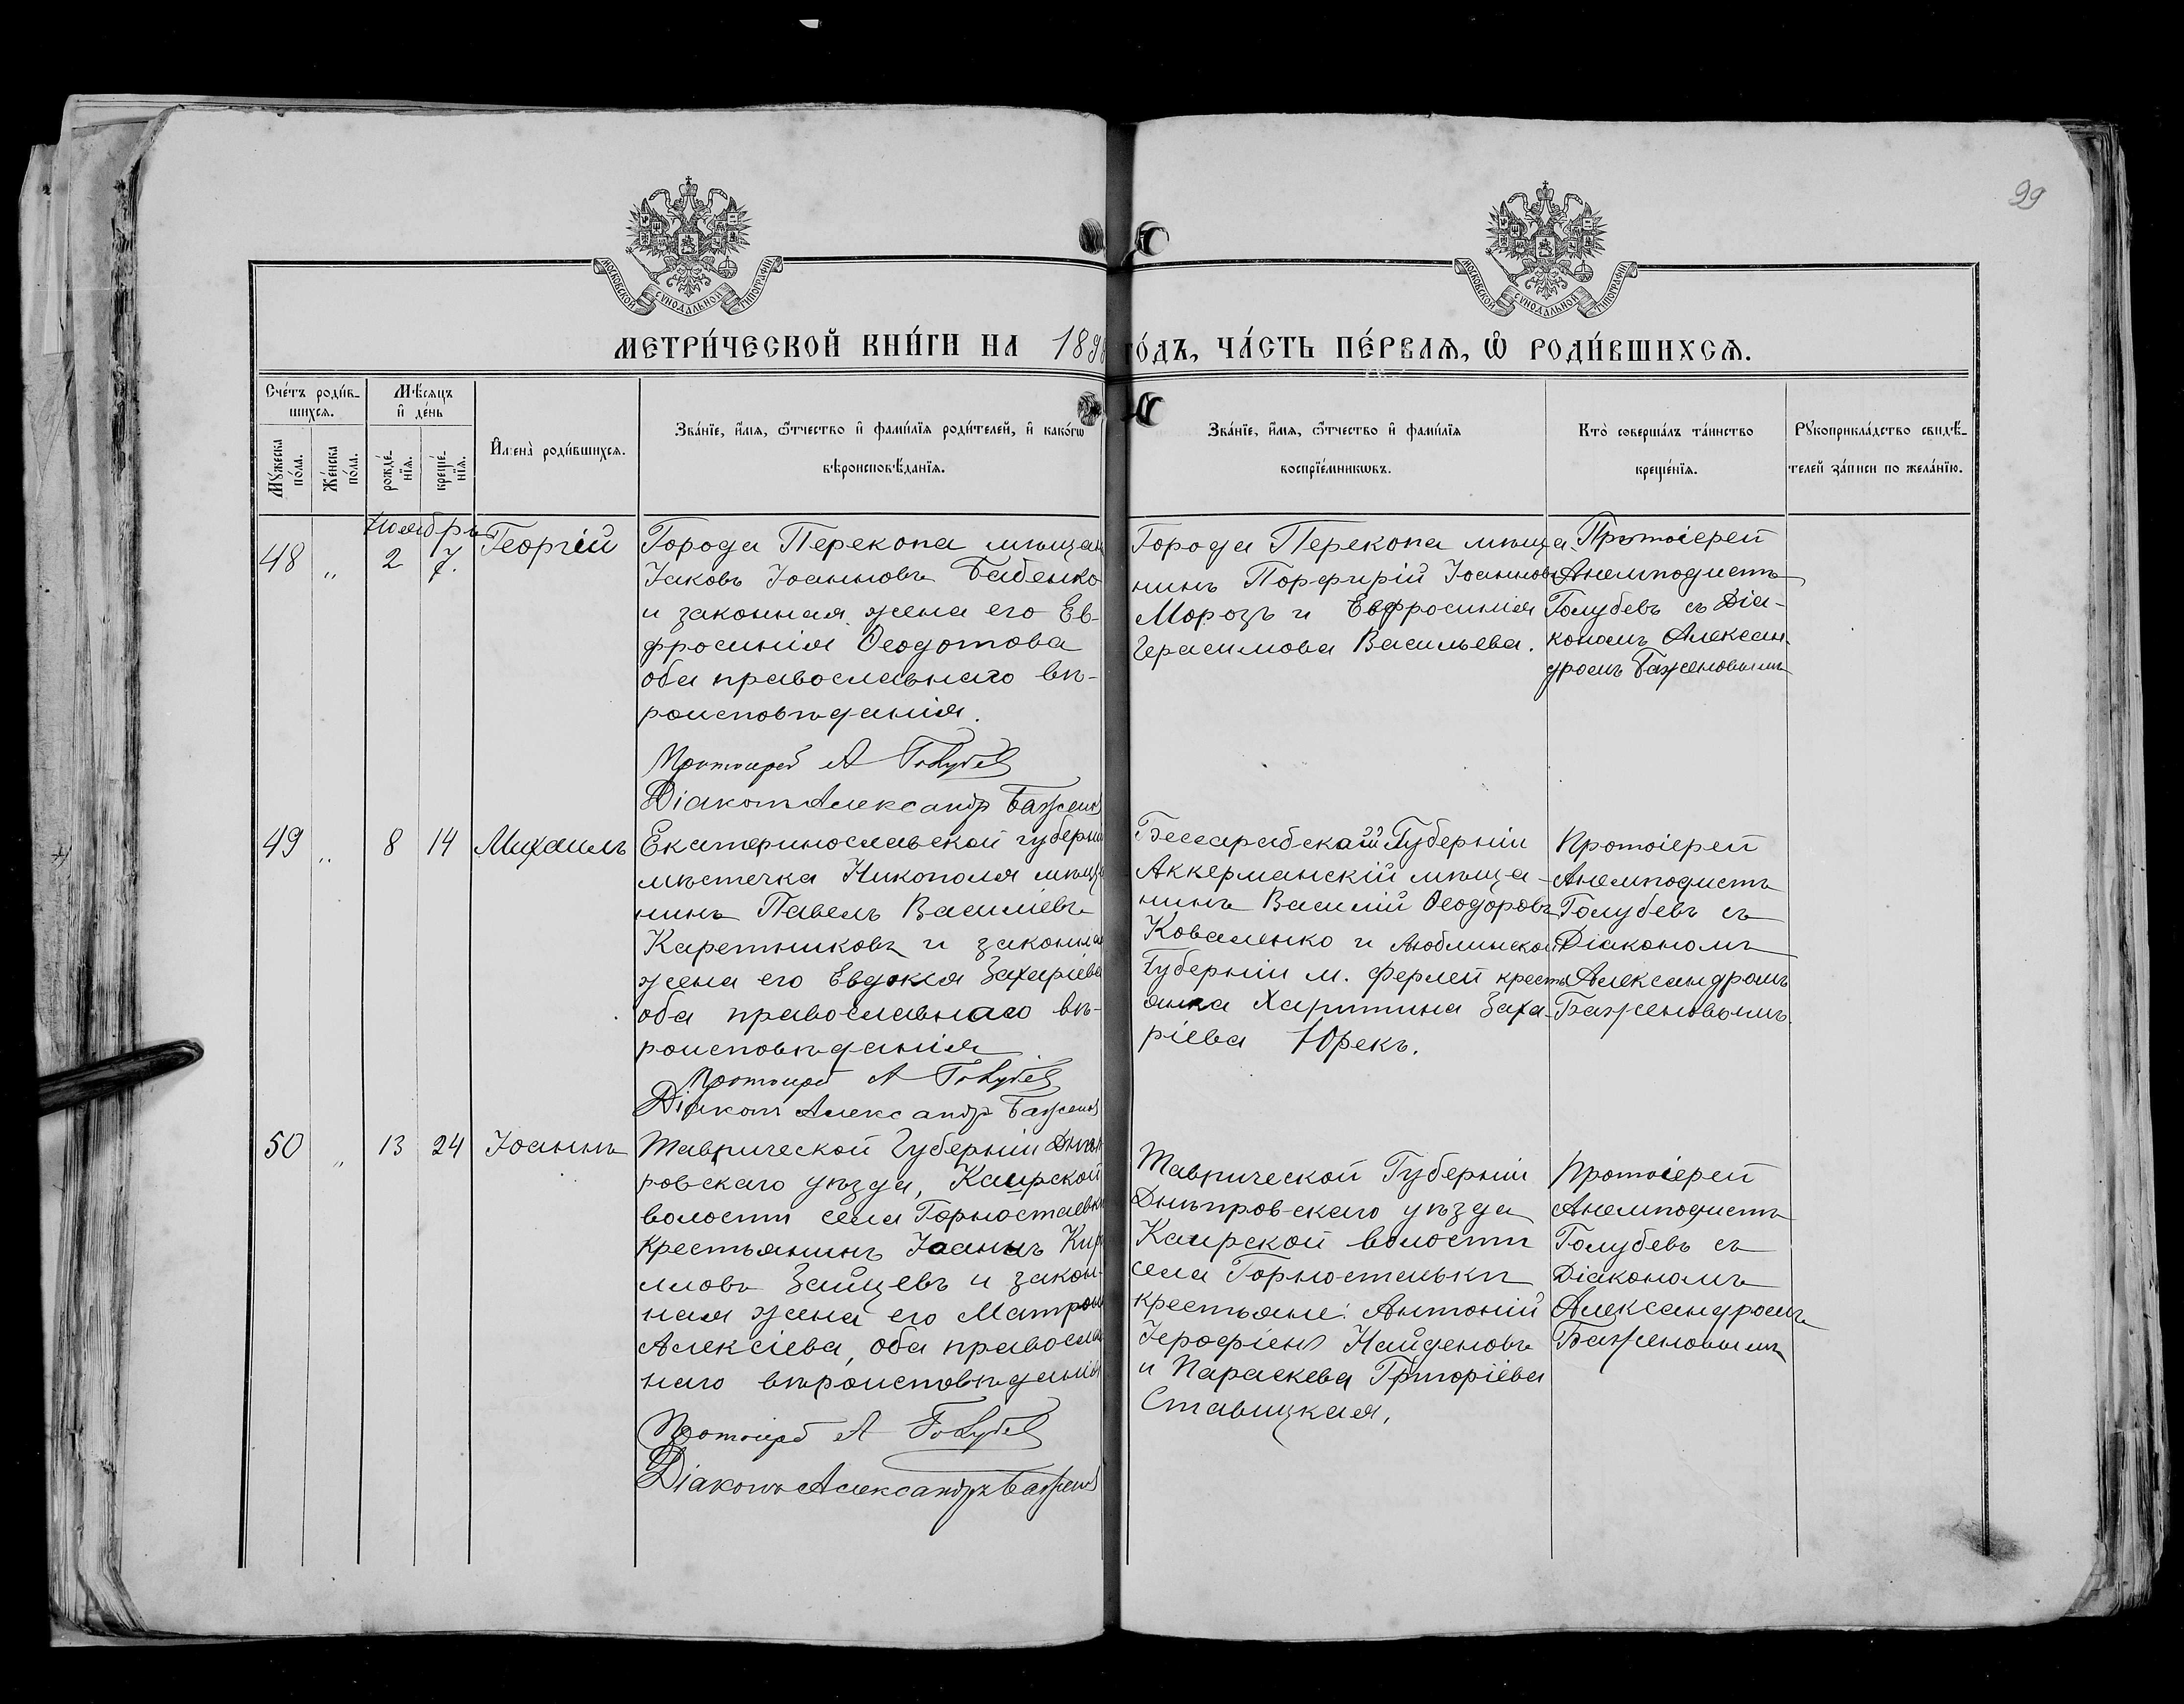 99
МОСКОВСКОЙ СѴНОДАЛЬНОЙ ТИПОГРАФІИ
МОСКОВСКОЙ СѴНОДАЛЬНОЙ ТИПОГРАФІИ
МЕТРИ́ЧЕСКОЙ КНИ́ГИ НА 189
го́дъ, ча́сть пе́рвая, ѿ роди́вшихся.
Сче́тъ роди́в-
шихся.
Мѣ́сяцъ
и҆ де́нь
Мꙋ́жеска
по́ла.
Же́нска
по́ла.
рожде́-
нїя.
креще́-
нїя.
И҆мена̀ роди́вшихся.
Зва́нїе, и҆́мя, ѻ҆́тчество и҆ фами́лїя роди́телей, и҆ како́гѡ
вѣроисповѣ́данїя.
Зва́нїе, и҆́мя, ѻ҆́тчество и҆ фами́лїя
воспрїе́мникѡвъ.
Кто̀ соверша́лъ та́инство
креще́нїя.
Рꙋкоприкла́дство свидѣ́-
телей за́писи по жела́нїю.
Ноябрь
48 „ 2 7. Георгій
Города Перекопа мѣщан
Іаковъ Іоанновъ Бабенко
и законная жена его Ев-
фросинія Ѳеодотова
оба православнаго вѣ-
роисповѣданія.
Протоіерей А Голубев
Діаконъ Александръ Баженов
Города Перекопа мѣща-
нинъ Порфирій Іоанновъ
Морозъ и Евфросинія
Герасимова Васильева.
Протоіерей
Анемподистъ
Голубевъ съ Діа-
кономъ Алексан-
дромъ Баженовымъ
49 „ 8 14 Михаилъ
Екатеринославской губерніи
мѣстечка Никополя мѣща
нинъ Павелъ Василіевъ
Каретниковъ и законная
жена его Евдокія Захаріева
оба православнаго вѣ-
роисповѣданія.
Протоіерей А Голубев
Діаконъ Александръ Баженов
Бессарабской Губерніи
Аккерманскій мѣща-
нинъ Василій Ѳеодоровъ
Коваленко и Люблинской
Губерніи м. Ферлей кресть
янка Харитина Заха-
ріева Юрекъ.
Протоіерей
Анемподистъ
Голубевъ съ
Діакономъ
Александромъ
Баженовымъ.
50 „ 13 24 Іоаннъ
Таврической Губерніи Днѣп
ровскаго уѣзда, Каирской
волости села Горностаевки
крестьянинъ Іоаннъ Кир
иловъ Зайцевъ и закон-
ная жена его Матрона
Алексіева, оба правосла
наго вѣроисповѣданія
Протоіерей А Голубев
Діаконъ Александръ Баженов
Таврической Губерніи
Днѣпровскаго уѣзда
Каирской волости
села Горностаевки
крестьяне: Антоній
Іерофіевъ Найденовъ
и Параскева Григоріева
Ставицкая,
Протоіерей
Анемподистъ
Голубевъ съ
Діакономъ
Александромъ
Баженовымъ